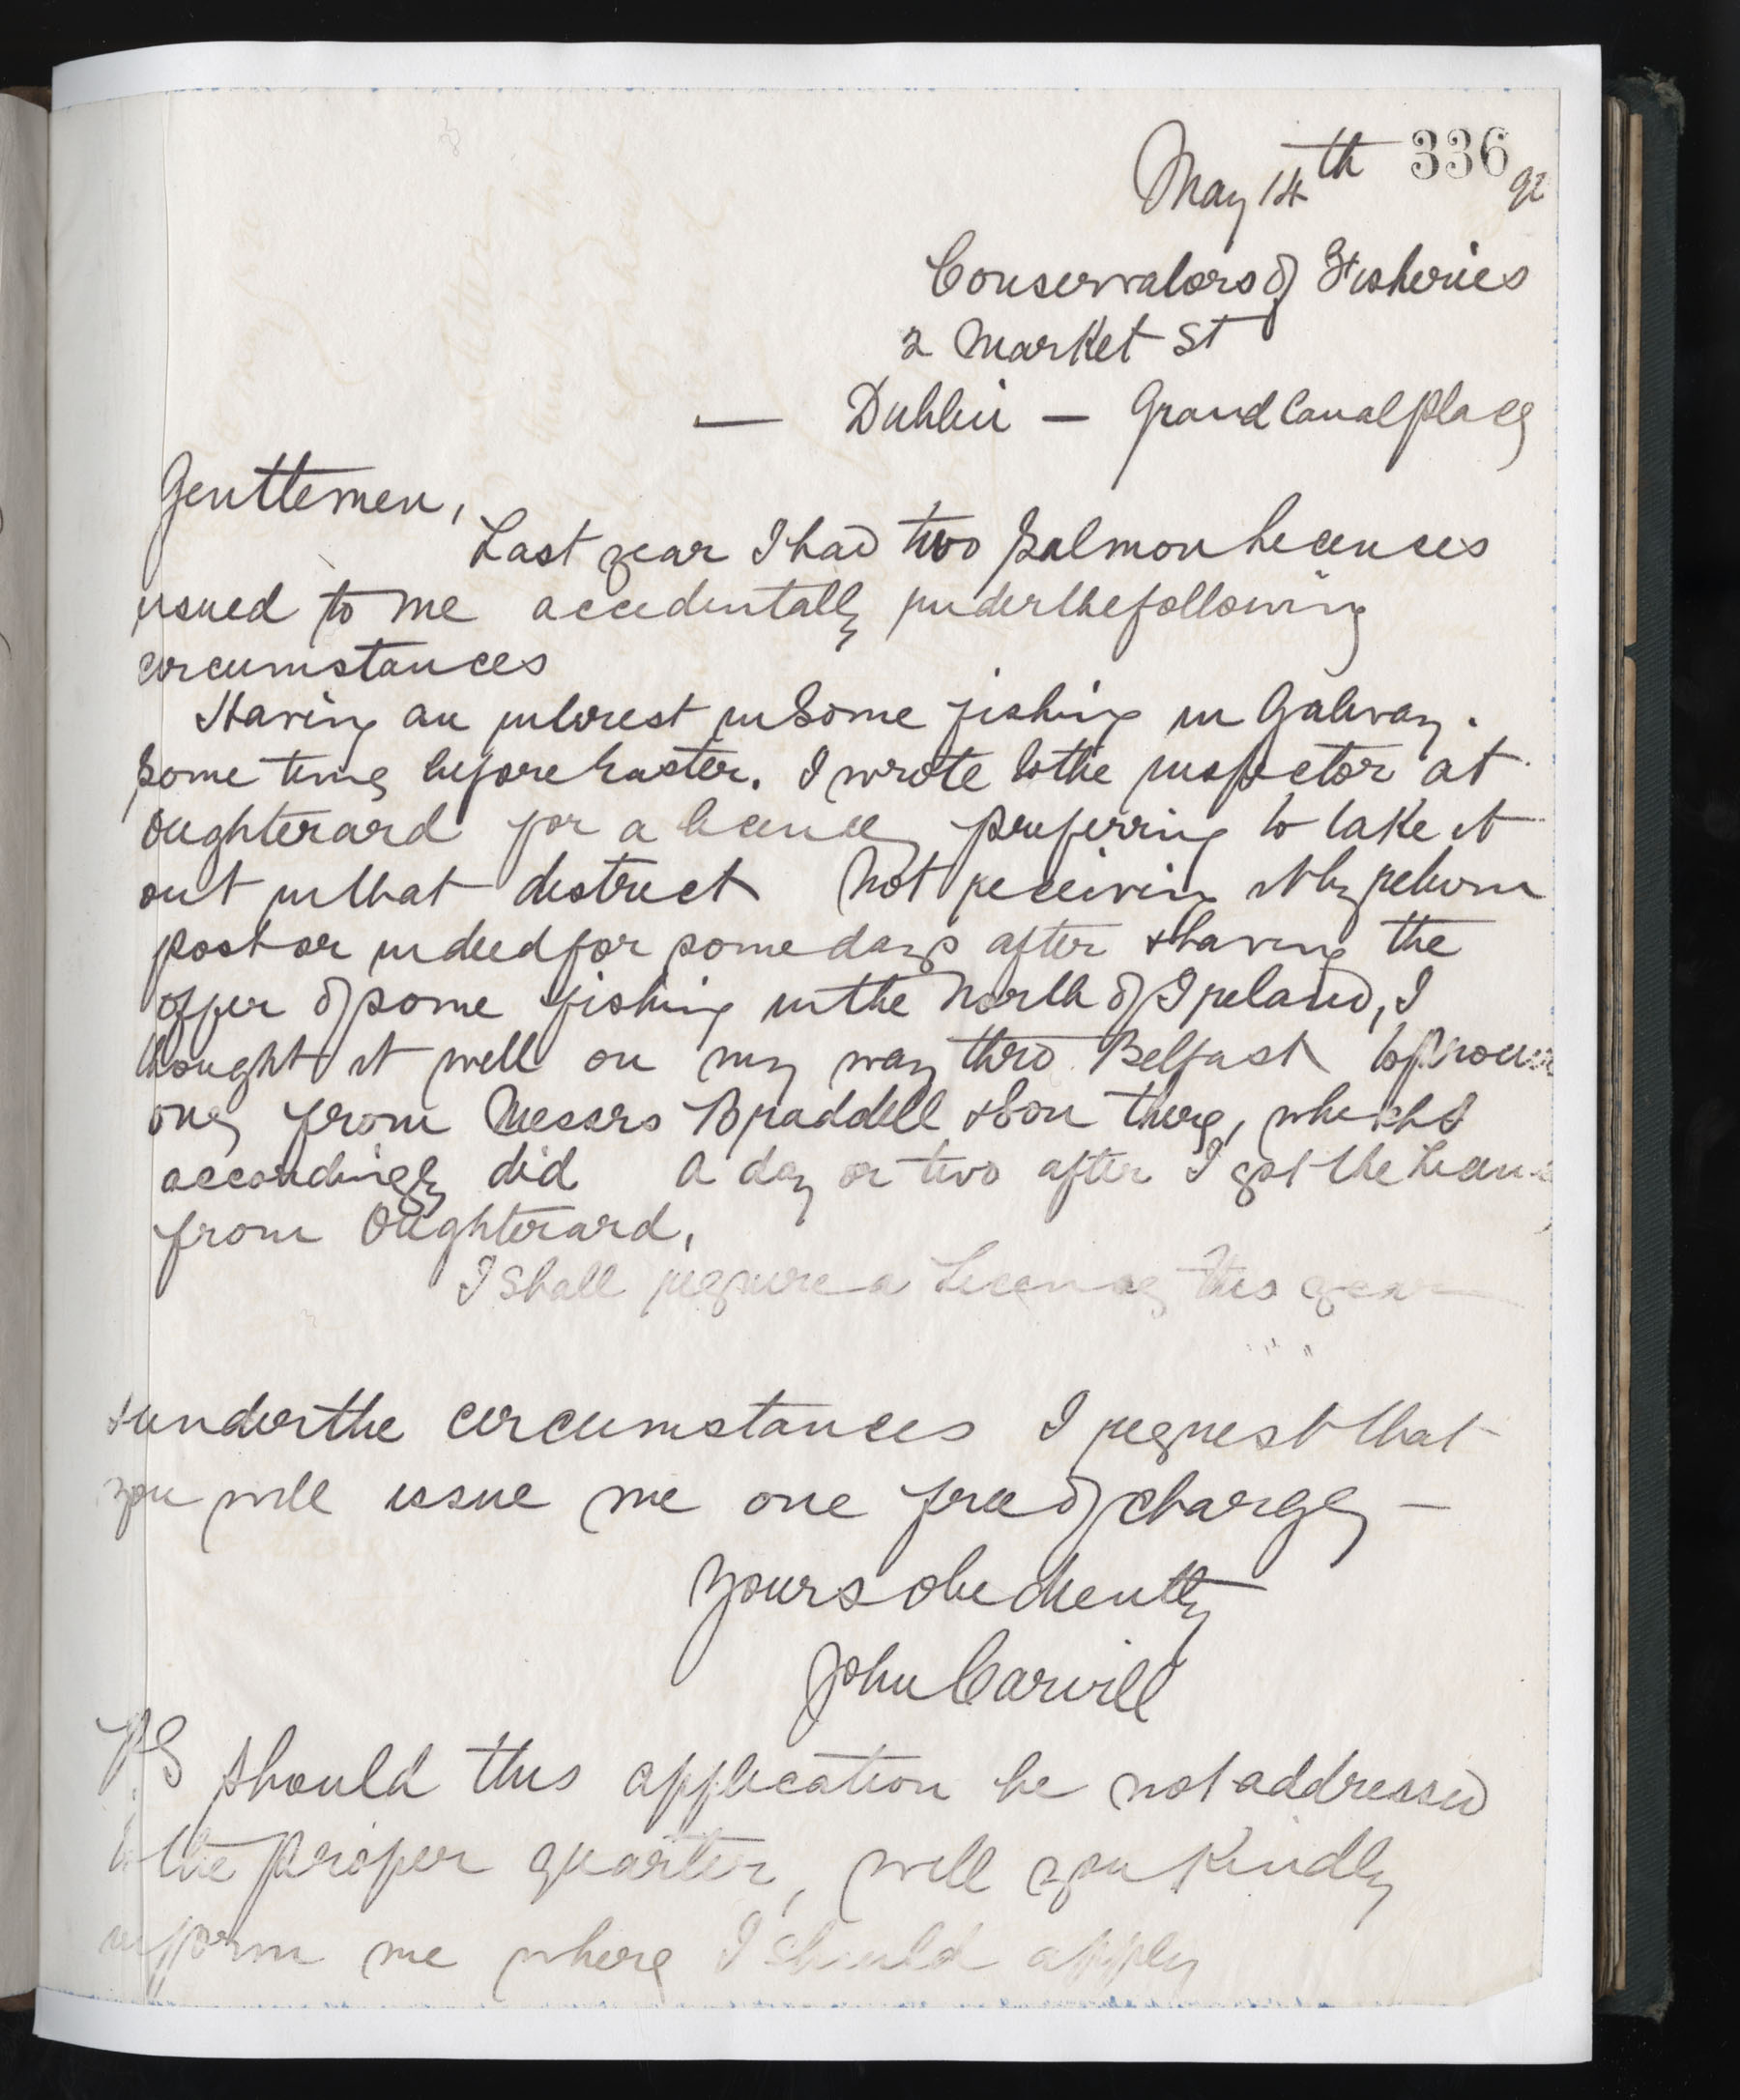 May 14th 336 92
Conservators of Fisheries
2 Market St
— Dublin — Grand Canal place
Gentlemen,
Last year I had two Salmon licenses
issued to me accidentally under the following
circumstances
Having an interest in some fishing in Galway.
Some time before Easter. I wrote to the inspector at
Oughterard for a license preferring to take it
out in that district Not receiving it by return
post or indeed for some days after & having the
offer of some fishing in the North of Ireland, I
thought it well on my way thro Belfast to procure
one from Messrs Braddell & Son there, which I
accordingly did A day or two after I got the license
from Oughterard,
I shall require a License this year
& under the circumstances I request that
you will issue me one free of charge —
Yours obediently
John Carvill
PS Should this application be not addressed
to the proper quarter, will you kindly
inform me where I should apply